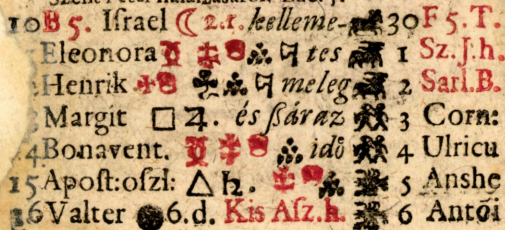 10 B 5. Iſrael ☾ 2.r. kelleme- 30 F 5. T.
Eleonora tes 1 Sz.J.h.
Henrik meleg 2 Sarl.B.
Margit □ ♃. és ſzáraz 3 Corn:
14 Bonavent. idő 4 Ulricu
15 Apoſt:oſzl: △ ♄. 5 Anshe
16 Valter ● 6.d. Kis Aſz.h. 6 Antói